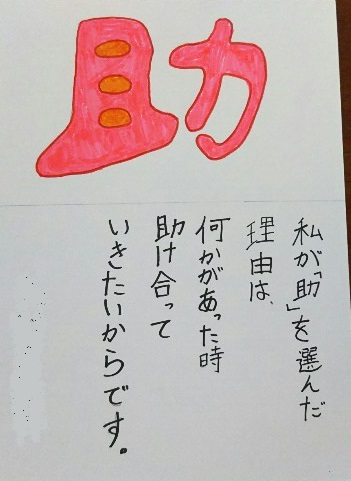 助
私が「助」を選んだ
理由は、
何かがあった時
助け合って
いきたいからです。